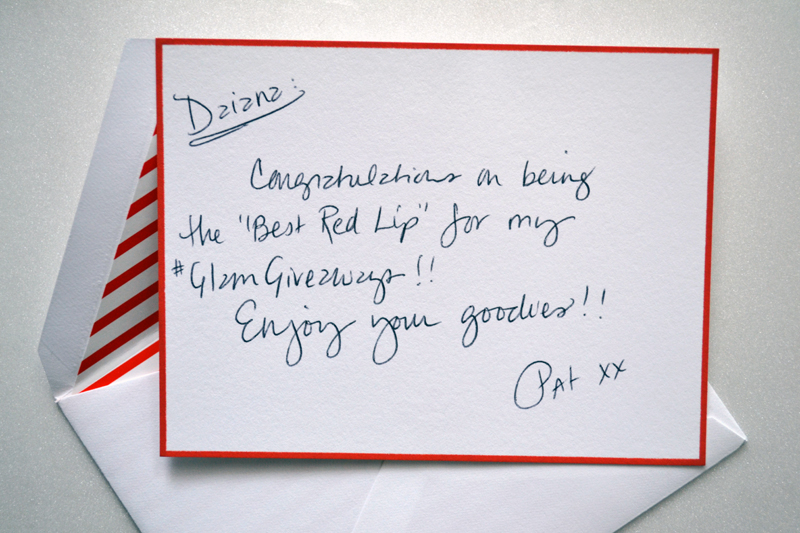 Daiana:
Congratulations on being
the "Best Red Lip" for my
#GlamGiveaways!!
Enjoy your goodies!!
Pat xx